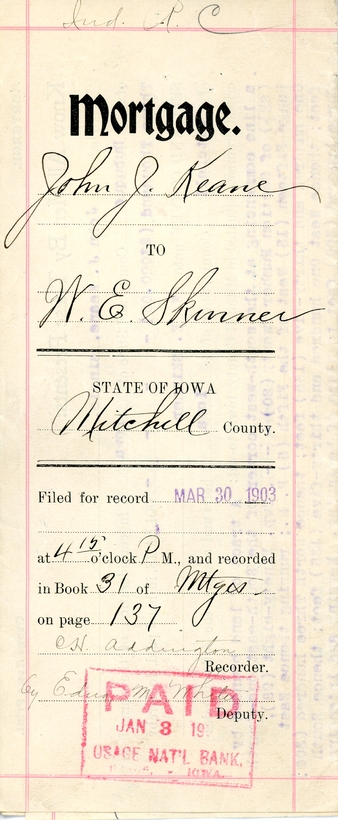 Ind. R. C
Mortgage.
John J. Keane
TO
W. E. Skinner
STATE OF IOWA
Mitchell County.
Filed for record MAR 30 1903
at 4 15 o'clock P M., and recorded
in Book 31 of Mtges
on page 137
C.H. Addington
Recorder.
by
Deputy.
PAID
JAN 3 19
OSAGE NAT'L BANK,
IOWA.